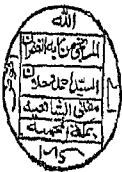 الله
المرتجي من ربه الغفران
السيد احمد دحلان
مفتي الشافعية
بمكة المحمية